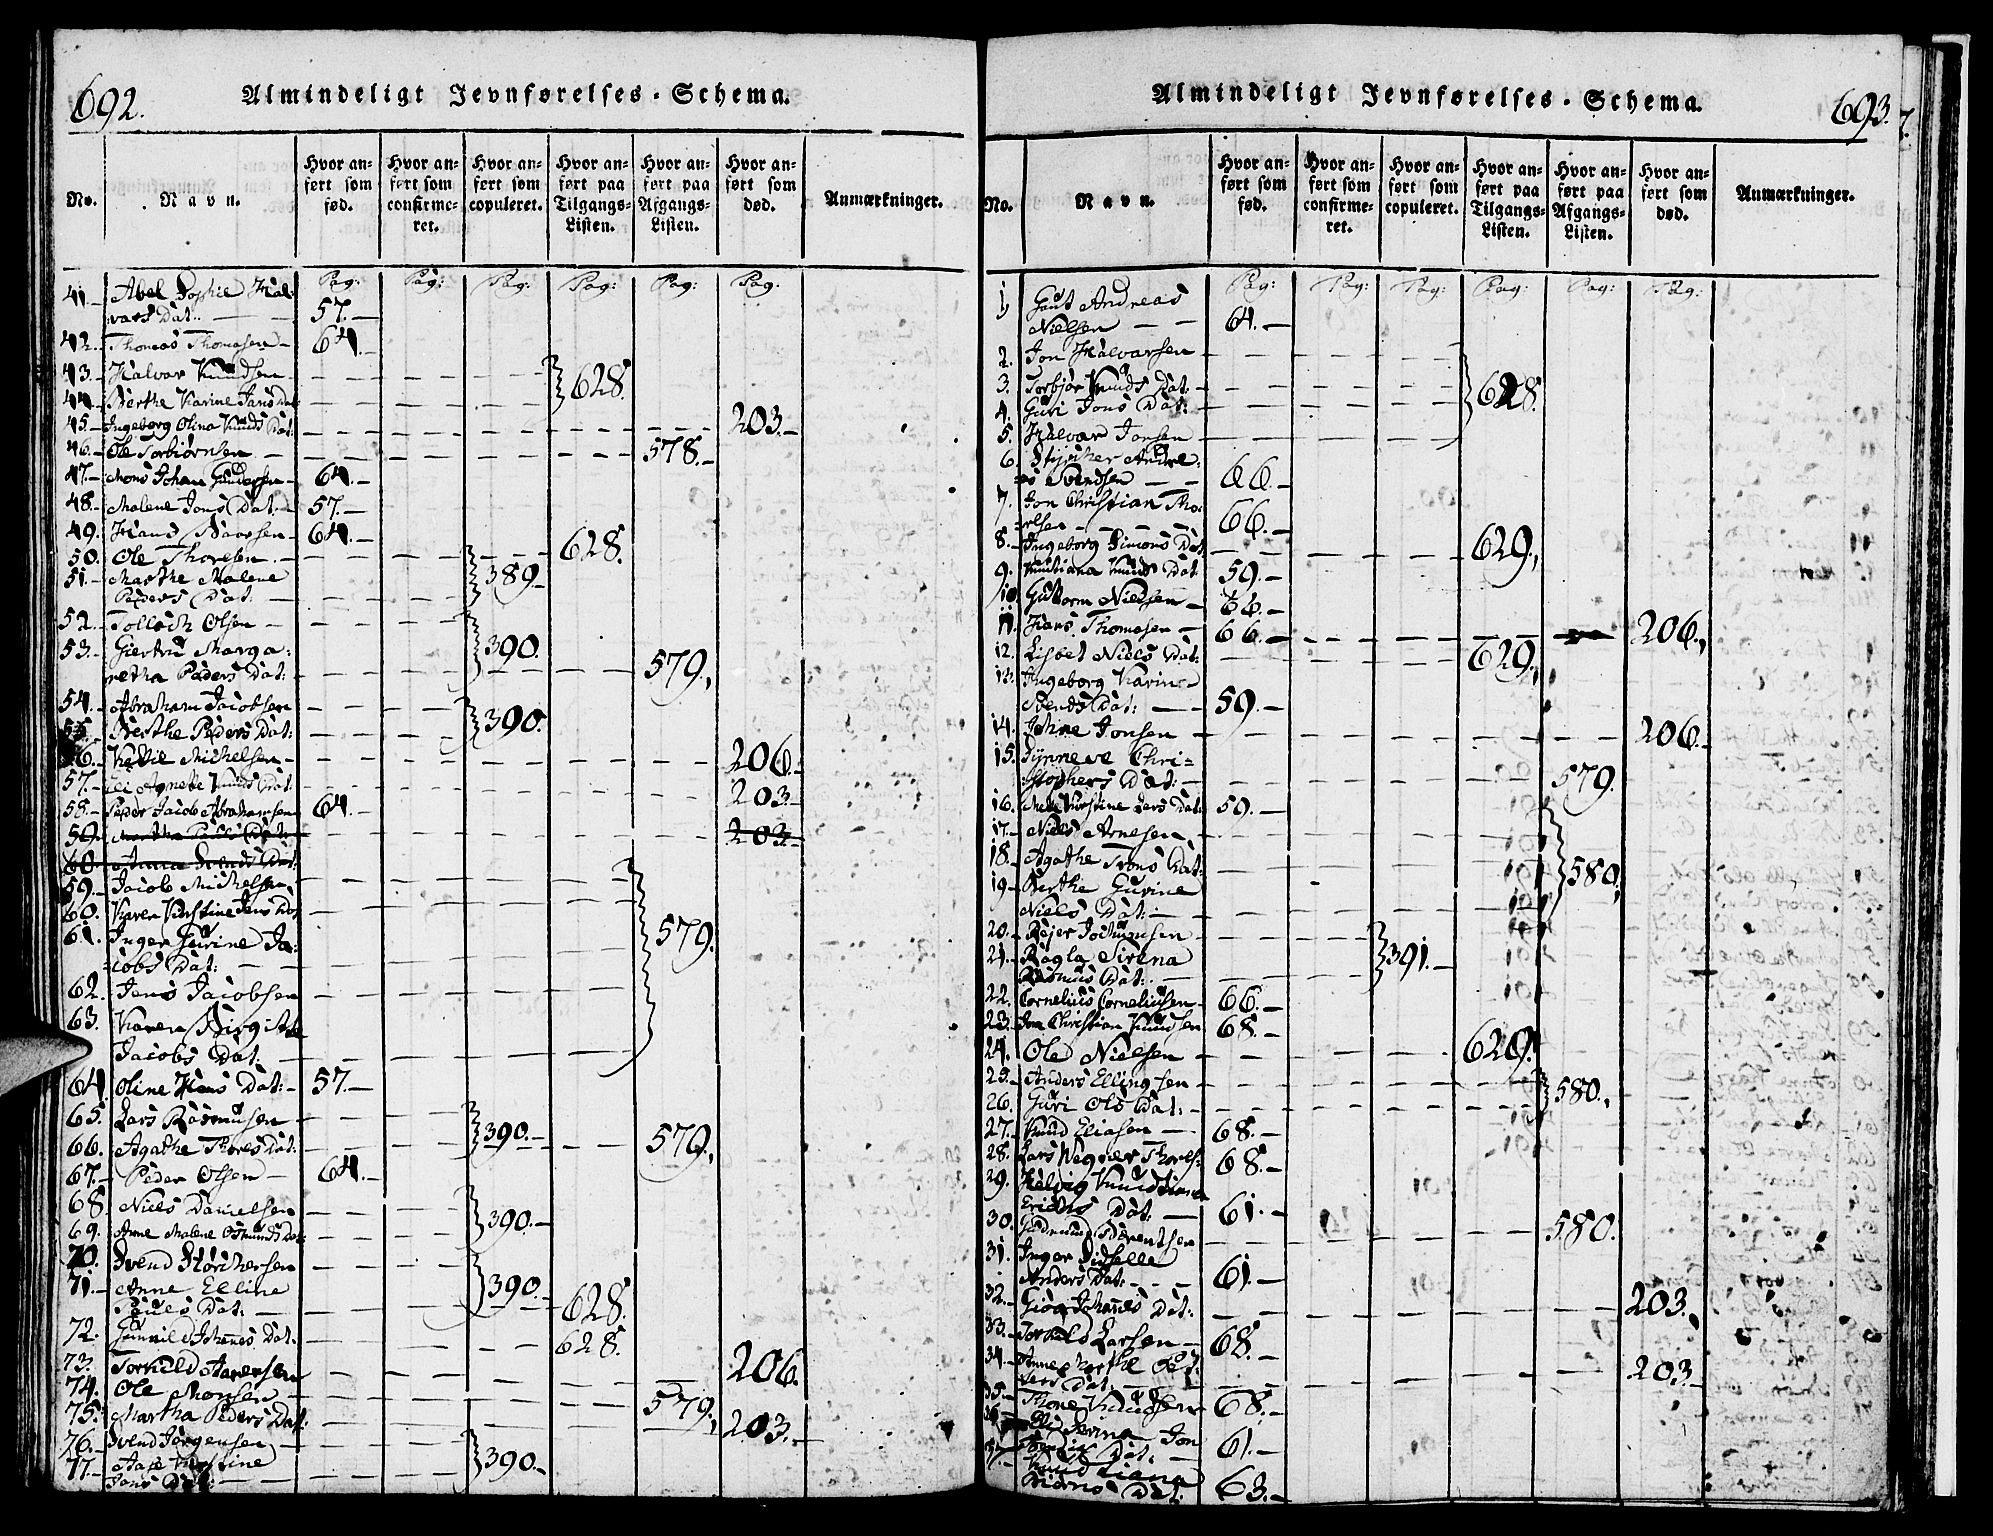 692.
Almindeligt Jevnførelses-Schema.
No.
Navn.
Hvor anført som fød.
Hvor anført som confirmeret.
Hvor anført som copuleret.
Hvor anført paa Tilgangs-Listen.
Hvor anført paa Afgangs-Listen.
Hvor anført som død.
Anmærkninger.
Pag: Pag: Pag: Pag: Pag: Pag.
41. Abel Sophie Hal-
vars Dat: 57.
42. Thomas Thomasen 64.
43. Halvor Knudsen 628.
44. Berthe Karine Jans Dat:
45. Ingeborg Olina Knuds Dat: 203.
46. Ole Torbiørnsen 578.
47. Mons Johan Gundersen 64.
48. Malene Jons Dat: 57.
49. Hans 64.
50. Ole Thorsen 389. 628.
51. Marthe Malene
Peders Dat:
52. Tollach Olsen 390.
53. Giertru Marga:
retha Peders Dat: 579.
54. Abraham Jacobsen 390.
55. Berthe Peders Dat:
56. Ketil Michelsen 206.
57. Agnete Knuds Dat: 203.
58. Peder Jacob Abrahamsen 64.
59. Martha Pauls Dat: 203.
60. Anna Svends Dat:
59. Jacob Michelsen 579.
60. Karen Kirstine Jens Dat
61. Inger Gurine Ja:
cobs Dat:
62. Jens Jacobsen
63. Karen Birgitte
Jacobs Dat:
64. Oline Hans Dat: 57.
65. Lars Rasmusen 390. 579.
66. Agathe Thores Dat:
67. Peder Olsen 64.
68. Niels Danielsen 390.
69. Anne Malene Osmunds Dat:
70. Svend Størchersen 390.
71. Anne Elline
Pauls Dat: 628.
72. Gunnild Johannes Dat: 628.
73. Torkild Aanensen 206.
74. Ole Monsen 579.
75. Martha Peders Dat: 203.
76. Svend Jørgensen 390.
77. Kirstine
Jons Dat:
693.
Almindeligt Jevnførelses-Schema.
No.
Navn.
Hvor anført som fød.
Hvor anført som confirmeret.
Hvor anført som copuleret.
Hvor anført paa Tilgangs-Listen.
Hvor anført paa Afgangs-Listen.
Hvor anført som død.
Anmærkninger.
Pag: Pag: Pag: Pag: Pag: Pag:
1. Gut Andreas
Nielsen 64.
2. Jon Halvarsen 628.
3. Torbjør Knuds Dat:
4. Guri Jons Dat:
5. Halvor Jonsen
6. Andre:
as Svendsen 66.
7. Jon Christian Tho:
rsen 66.
8. Ingeborg Simons Dat 629.
9. Knutiana Knuds Dat: 59.
10. Guttorm Nielsen 66.
11. Hans Thomasen 66. 206.
12. Lisbet Niels Dat: 629.
13. Ingeborg Karine
Svends Dat: 59.
14. Johne Jonsen 206.
15. Synneve Chri-
stophers Dat: 579.
16. Mette Kirstine Lars Dat 59.
17. Niels Arnesen 580.
18. Agathe Trons Dat:
19. Berthe Gurine
Niels Dat:
20. Rejer Jochumsen 391.
21. Ragla Sirena
Rasmus Dat:
22. Cornelius Corneliusen 66.
23. Jon Christian Knudsen 68.
24. Ole Nielsen 629.
25. Anders Ellingsen 580.
26. Guri Ols Dat:
27. Knud Eliasen 68.
28. Lars Wegner Thorls: 68.
29. Helvig Knudtiana
Erichs Dat: 61.
30. Gudmund Sørensen 580.
31. Inger Sidselle
Anders Dat: 61.
32. Giøa Johannes Dat: 203.
33. Torkild Larsen 68.
34. Anne Marthe Pe-
ders Dat: 203.
35. Thone Knudsen 68.
36. Serina Jon
Dat: 61.
37. Knudtiana
Biørns Dat: 63.